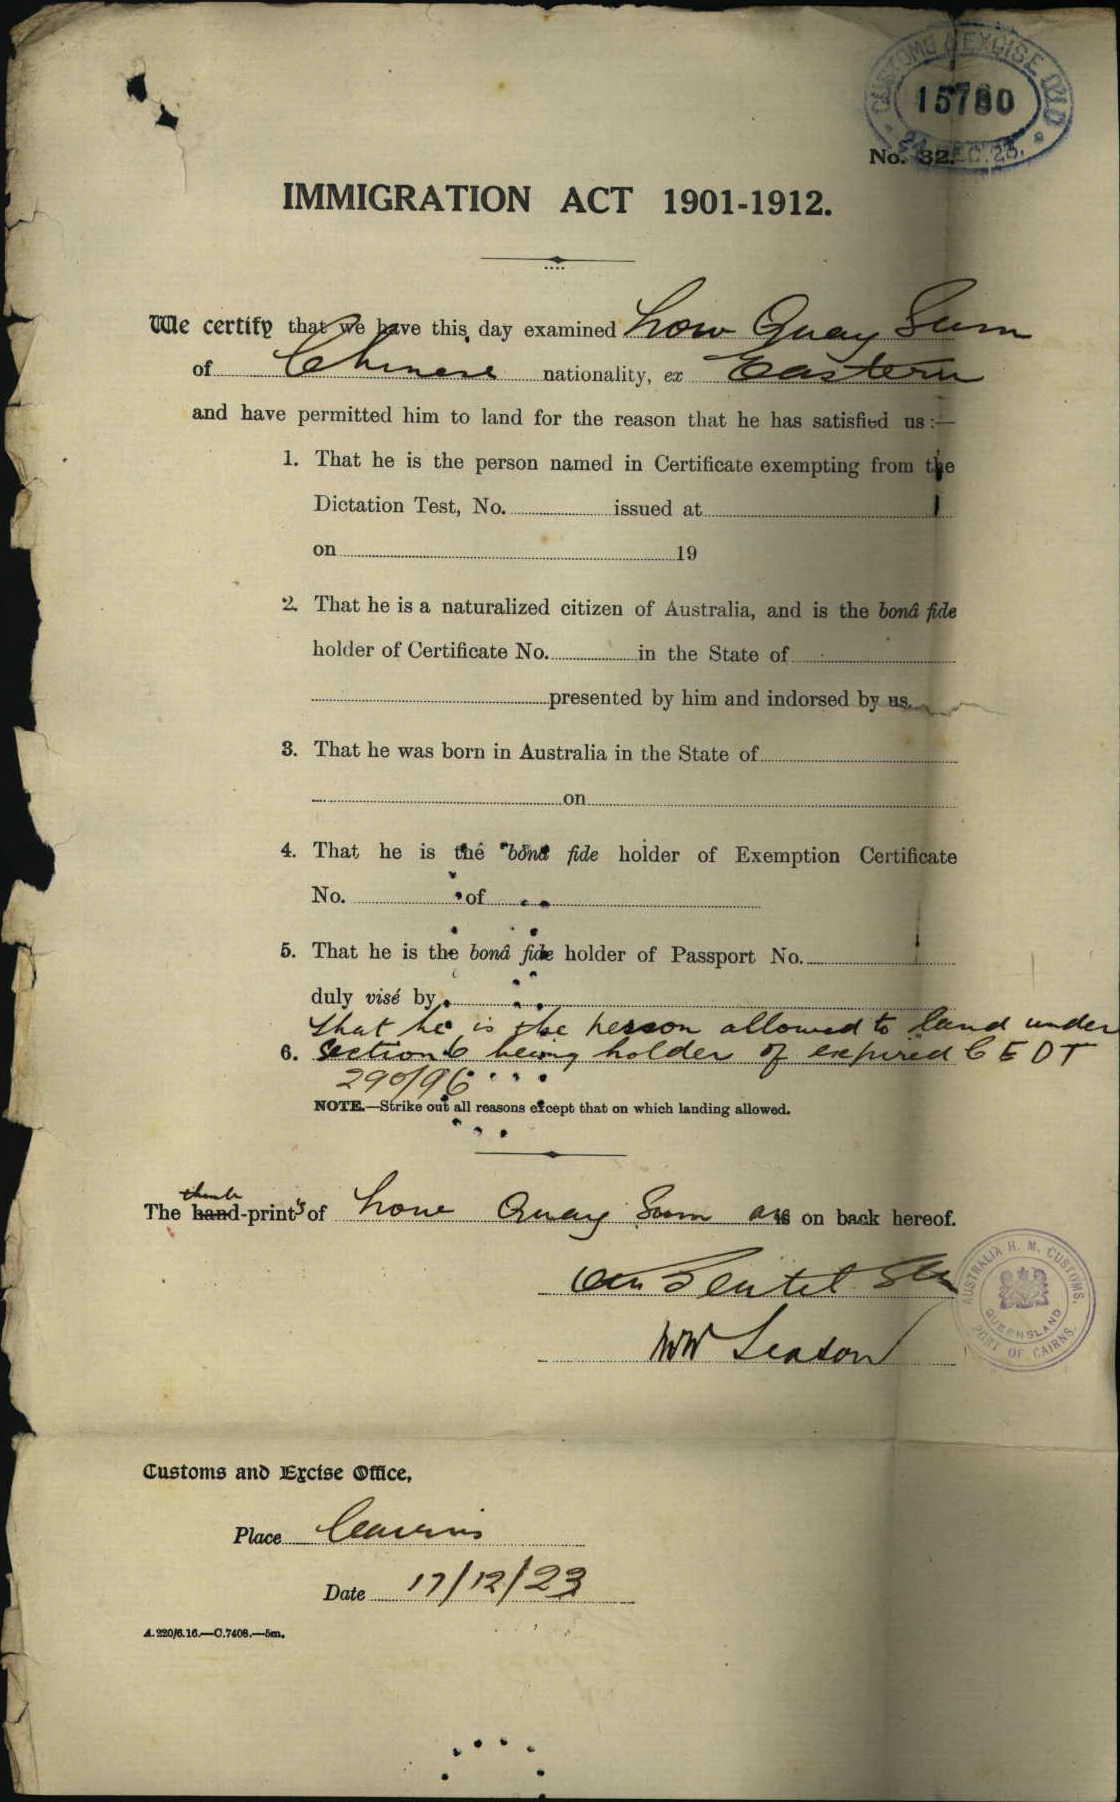 CUSTOMS & EXCISE QLD
15780
DEC. 23.
No. 32.
IMMIGRATION ACT 1901-1912.
We certify that we have this day examined Low Quay Sum
of Chinese nationality, ex Eastern
and have permitted him to land for the reason that he has satisfied us:—
1. That he is the person named in Certificate exempting from the
Dictation Test, No. issued at
on 19
2. That he is a naturalized citizen of Australia, and is the bonâ fide
holder of Certificate No. in the State of
presented by him and indorsed by us.
3. That he was born in Australia in the State of
on
4. That he is the bonâ fide holder of Exemption Certificate
No. of
5. That he is the bonâ fide holder of Passport No.
duly visé by
that he is the person allowed to land under
6. Section 6 being holder of expired C E D T
290/96
NOTE.—Strike out all reasons except that on which landing allowed.
thumb
The hand-print's of Low Quay Sum are on back hereof.
WW Leason
AUSTRALIA H. M. CUSTOMS.
QUEENSLAND
PORT OF CAIRNS.
Customs and Excise Office,
Place Cairns
Date 17/12/23
A.220/6.16.—C.7408.—5m.